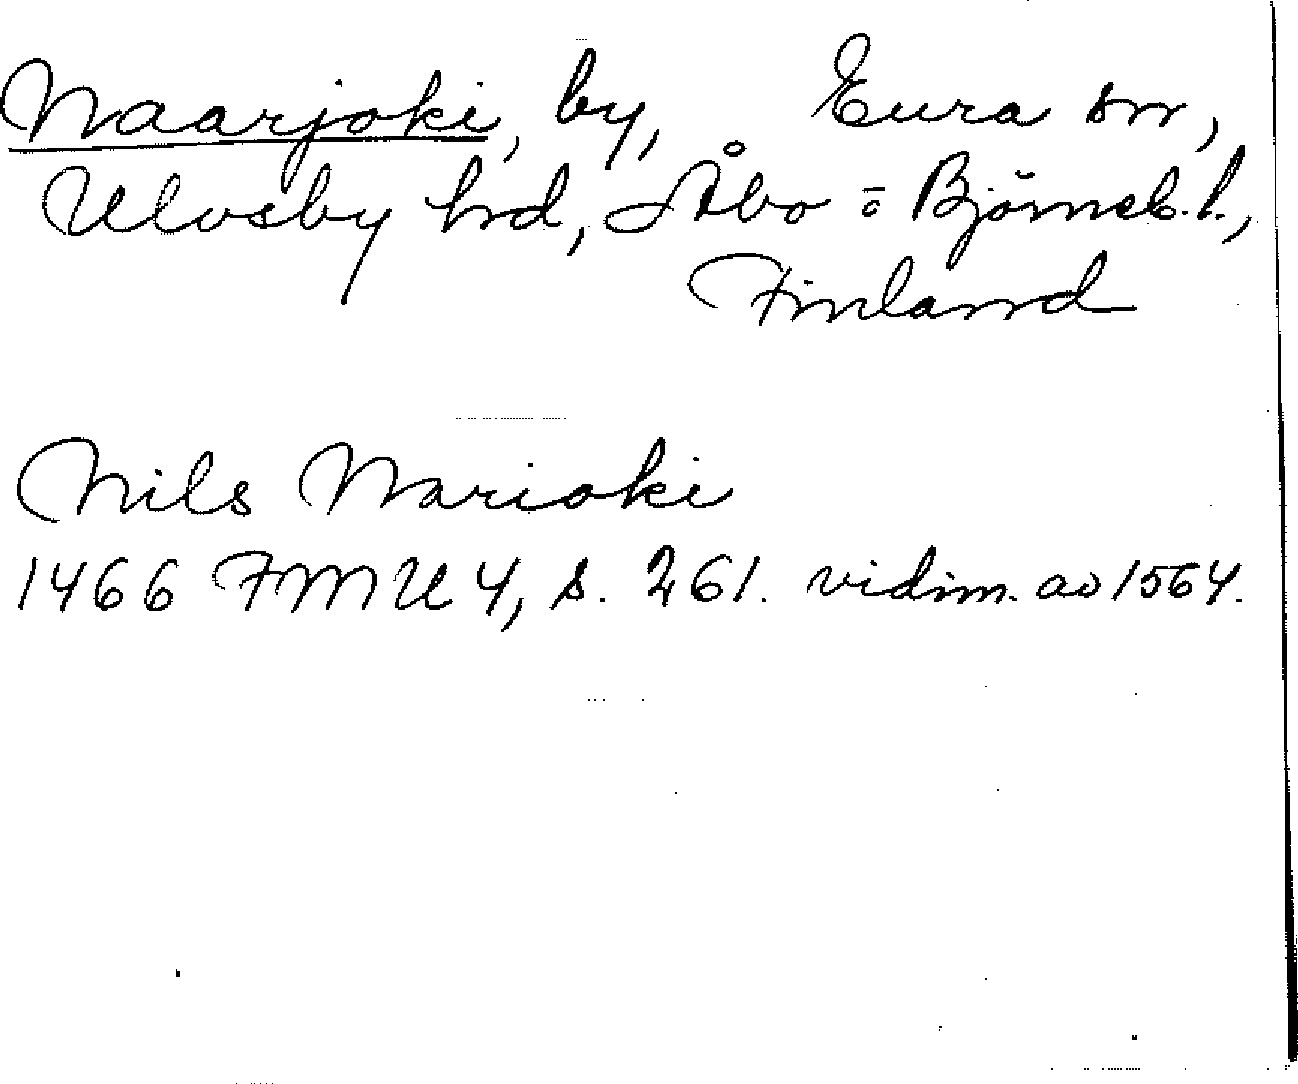 Naarjoki, by, Eura sn,
Ulvsby hrd, Åbo = Björneb. l.,
Finland
Nils Narioki
1466 FMU 4, s. 261. vidim. av 1564.